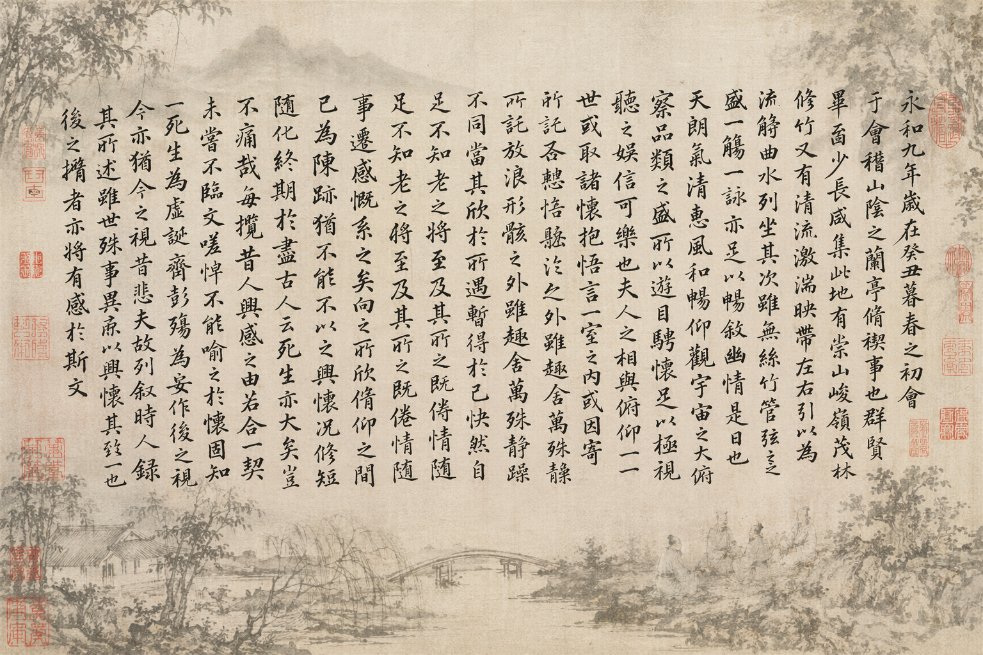 永和九年歳在癸丑暮春之初會
于會稽山陰之蘭亭脩禊事也群賢
畢少長咸集此地有崇山峻嶺茂林
修竹又有清流激湍映帶左右引以為
流觴曲水列坐其次雖無絲竹管弦之
盛一觴一詠亦足以暢敘幽情是日也
天朗氣清惠風和暢仰觀宇宙之大俯
察品類之盛所以遊目騁懷足以極視
聽之娛信可樂也夫人之相與俯仰一一
世或取諸懷抱悟言一室之內或因寄
所託悟之外雖趣舍萬殊
所託放浪形骸之外雖趣舍萬殊静躁
不同當其欣於所遇暫得於己快然自
足不知老之將至及其所之既倦情隨
足不知老之將至及其所之既倦情随
事遷感慨系之矣向之所欣脩仰之間
已為陳跡猶不能不以之興懷况修短
随化終期於盡古人云死生亦大矣豈
不痛哉每攬昔人興感之由若合一契
未嘗不臨文嗟悼不能喻之於懷固知
一死生為虛誕齊彭殤為妄作後之視
今亦猶今之視昔悲夫故列叙時人録
其所述雖世殊事異以興懷其一也
後之攬者亦將有感於斯文